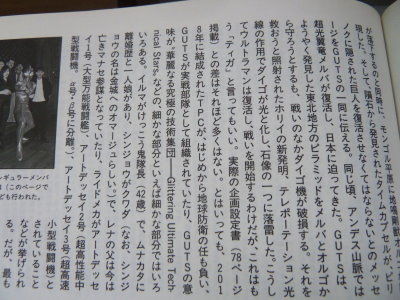 が落下するのと同時に、モンゴル平原に地鳴
現した。そして、隕石から発見されたタイムカプセルが、ビリ
ノクに隠された巨人を復活させなくてはならないとのメッセ
ージをGUTSの一同に伝える。同じ頃、アンデス山脈では
超光翼竜メルバが復活し、日本に迫ってきた。GUTSは、
ようやく発見した東北地方のピラミッドをメルバとオルゴか
ら守ろうとするも、戦いのなかダイゴ機が破損する。それを
救おうと照射されたホリイの新発明、テレポーテーション光
線の作用でダイゴが光と化し、石像の一つに落雷した。こうし
てウルトラマンは復活し、戦いを開始するわけだが、これはも
う「ティガ」と言ってもいい。実際の企画設定書(78ページ
掲載)との差はそれほど多くはない。とはいっても、201
8年に結成されたTPCが、はじめから地球防衛の任も負い、
GUTSが実戦部隊として組織されていたり、GUTSの意
味が"華麗なる究極の技術集団——Glittering Ultimate Tech-
nical Staffs"などの、細かな部分といえば細かな部分ではいろ
いろある。イルマがけっこう鬼隊長(42歳)で、ムナカタに
離婚歴と一人娘があり、シンジョウがクワダ(なお、シンジ
ョウの名は金城へのオマージュらしい)で、レナの父は今は
亡きマナセ参謀となっていたり、ライドメカがアートデッセ
イ1号(大型万能戦闘艦)、アートデッセイ2号(超高性能中
型戦闘機。α号・β号に分離)、アートデッセイ3号(超高速
小型戦闘機)と
されていること
などが挙げられ
る。だが、最も
ギュラーメンバ
は(このページで
ども行われた。